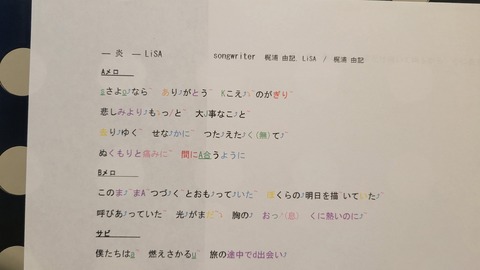 ― 炎 ― LiSA songwriter 梶浦 由記, LiSA / 梶浦 由記
Aメロ
aさよoなら~ あり♪がとう~ Kこえ♪~のがぎり~
悲しみより♪も っ♪と~ 大J事なこ♪と~
去り♪ゆく~ せな♪かに~ つた♪えた♪く(無)て♪~
ぬくもりと痛みに~ 間にA合うように
Bメロ
このま♪~まA~つづ♪く~とおも♪って♪いた~ ぼくらの♪明日を描~いていた♪~
呼びあ♪っていた~ 光♪がまだ~♪ 胸の♪ おっ~(息) くに熱いのに♪~
サビ
僕たちはa~ 燃えさかるu~ 旅の途中でd出会い♪